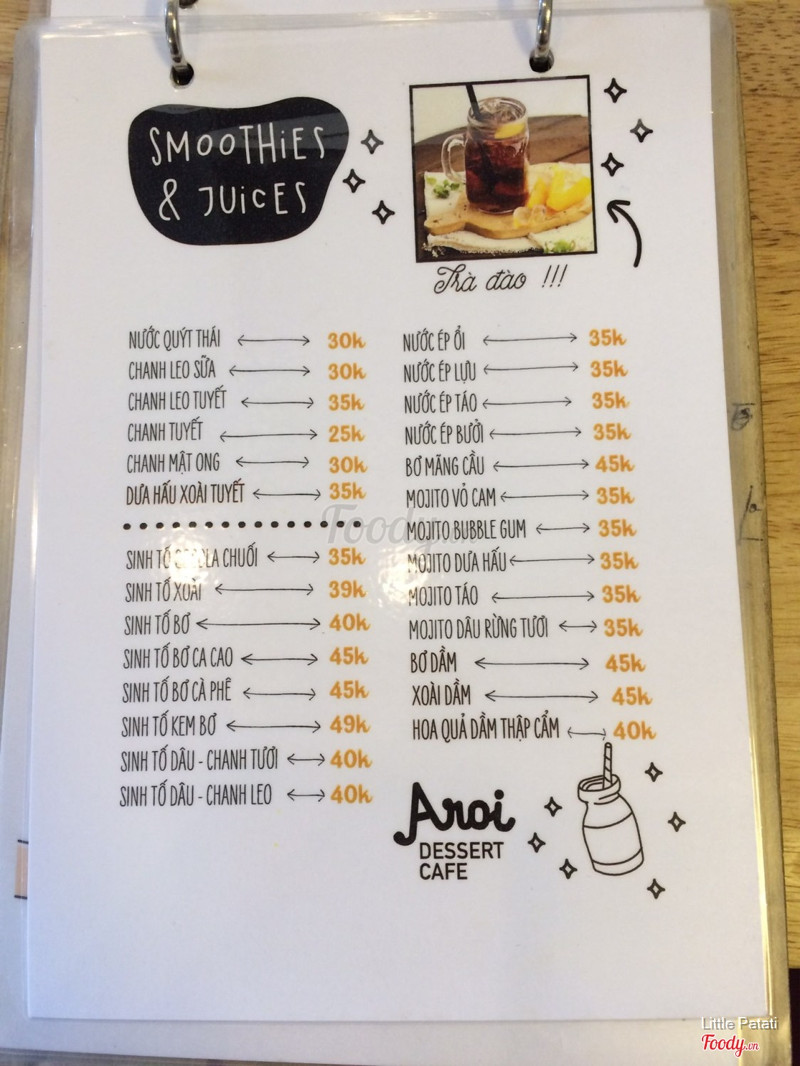 SMOOTHIES
& JUICES
Trà đào !!!
NƯỚC QUÝT THÁI 30k
CHANH LEO SỮA 30k
CHANH LEO TUYẾT 35k
CHANH TUYẾT 25k
CHANH MẬT ONG 30k
DƯA HẤU XOÀI TUYẾT 35k
SINH TỐ CHUỐI 35k
SINH TỐ XOÀI 39k
SINH TỐ BƠ 40k
SINH TỐ BƠ CA CAO 45k
SINH TỐ BƠ CÀ PHÊ 45k
SINH TỐ KEM BƠ 49k
SINH TỐ DÂU - CHANH TƯƠI 40k
SINH TỐ DÂU - CHANH LEO 40k
NƯỚC ÉP ỔI 35k
NƯỚC ÉP LỰU 35k
NƯỚC ÉP TÁO 35k
NƯỚC ÉP BƯỞI 35k
BƠ MÃNG CẦU 45k
MOJITO VỎ CAM 35k
MOJITO BUBBLE GUM 35k
MOJITO DƯA HẤU 35k
MOJITO TÁO 35k
MOJITO DÂU RỪNG TƯƠI 35k
BƠ DẦM 45k
XOÀI DẦM 45k
HOA QUẢ DẦM THẬP CẨM 40k
Aroi
DESSERT
CAFE
Foody.vn
Little Patati
Foody.vn